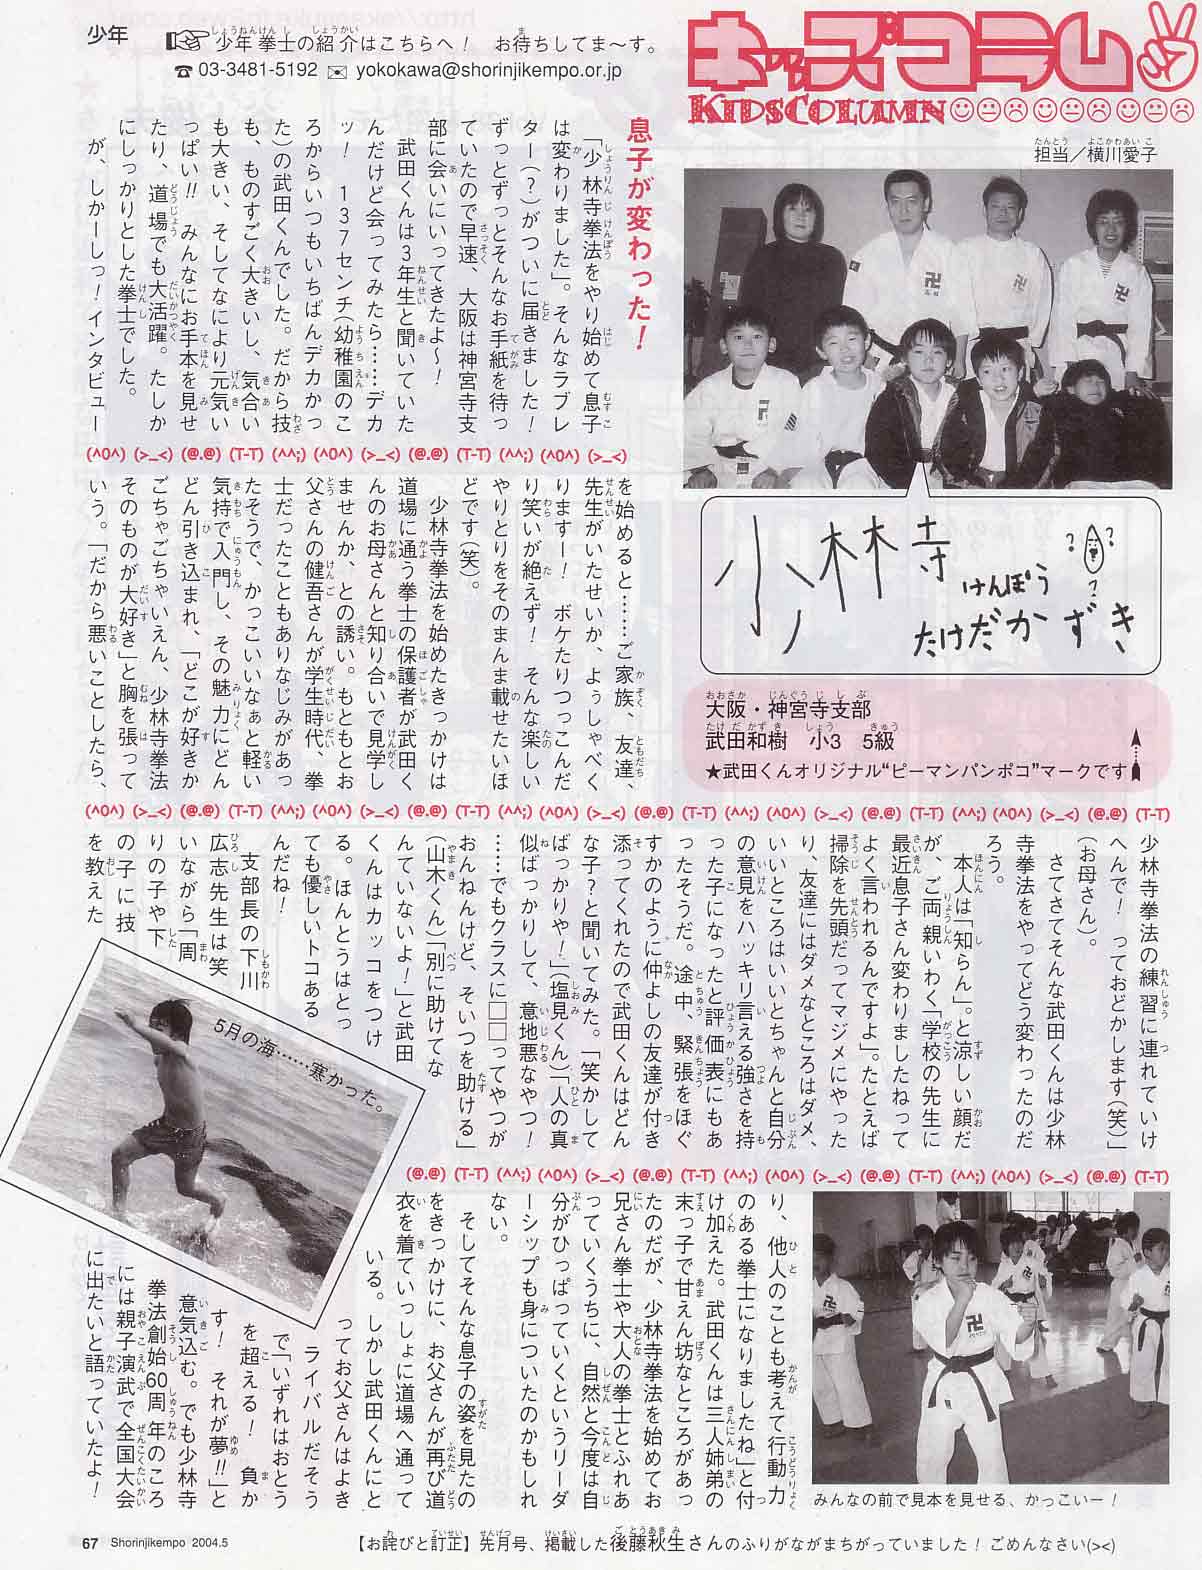 少年
☞ 少年拳士の紹介はこちらへ！　お待ちしてま〜す。
☎ 03-3481-5192 ✉ yokokawa@shorinjikempo.or.jp
キッズコラム
KIDSCOLUMN
担当／横川愛子
息子が変わった！
「少林寺拳法をやり始めて息子
は変わりました」。そんなラブレ
ター（？）がついに届きました！
ずっとずっとそんなお手紙を待っ
ていたので早速、大阪は神宮寺支
部に会いにいってきたよ〜！
武田くんは3年生と聞いていた
んだけど会ってみたら……デカ
ッ！　137センチ（幼稚園のこ
ろからいつもいちばんデカかっ
た）の武田くんでした。だから技
も、ものすごく大きいし、気合い
も大きい、そしてなにより元気い
っぱい!!　みんなにお手本を見せ
たり、道場でも大活躍。たしか
にしっかりとした拳士でした。
が、しかーしっ！インタビュー
(^0^) (>_<) (@.@) (T-T) (^^;) (^0^) (>_<) (@.@) (T-T) (^^;) (^0^) (>_<)
を始めると……ご家族、友達、
先生がいたせいか、よぅしゃべく
りますー！　ボケたりつっこんだ
り笑いが絶えず！そんな楽しい
やりとりをそのまんま載せたいほ
どです（笑）。
少林寺拳法を始めたきっかけは
道場に通う拳士の保護者が武田く
んのお母さんと知り合いで見学し
ませんか、との誘い。もともとお
父さんの健吾さんが学生時代、拳
士だったこともありなじみがあっ
たそうで、かっこいいなぁと軽い
気持で入門し、その魅力にどん
どん引き込まれ、「どこが好きか
ごちゃごちゃいえん、少林寺拳法
そのものが大好き」と胸を張って
いう。「だから悪いことしたら、
小林寺
けんぽう
たけだかずき
? ? ?
大阪・神宮寺支部
武田和樹　小3　5級
★武田くんオリジナル“ピーマンパンポコ”マークです
(^0^) (>_<) (@.@) (T-T) (^^;) (^0^) (>_<) (@.@) (T-T) (^^;) (^0^) (>_<) (@.@) (T-T) (^^;) (^0^) (>_<) (@.@) (T-T) (^^;) (^0^) (>_<) (@.@) (T-T)
少林寺拳法の練習に連れていけ
へんで！っておどかします（笑）」
（お母さん）。
さてさてそんな武田くんは少林
寺拳法をやってどう変わったのだ
ろう。
本人は「知らん」。と涼しい顔だ
が、ご両親いわく「学校の先生に
最近息子さん変わりましたねって
よく言われるんですよ」。たとえば
掃除を先頭だってマジメにやった
り、友達にはダメなところはダメ、
いいところはいいとちゃんと自分
の意見をハッキリ言える強さを持
った子になったと評価表にもあ
ったそうだ。途中、緊張をほぐ
すかのように仲よしの友達が付き
添ってくれたので武田くんはどん
な子？と聞いてみた。「笑かして
ばっかりや！」（塩見くん）「人の真
似ばっかりして、意地悪なやつ！
……でもクラスに□□ってやつが
おんねんけど、そいつを助ける」
（山木くん）「別に助けてな
んていないよ！」と武田
くんはカッコをつけ
る。ほんとうはとっ
ても優しいトコある
んだね！
支部長の下川
広志先生は笑
いながら「周
りの子や下
の子に技
を教えた
5月の海……寒かった。
(@.@) (T-T) (^^;) (^0^) (>_<) (@.@) (T-T) (^^;) (^0^) (>_<) (@.@) (T-T) (^^;) (^0^) (>_<) (@.@) (T-T)
り、他人のことも考えて行動力
のある拳士になりましたね」と付
け加えた。武田くんは三人姉弟の
末っ子で甘えん坊なところがあっ
たのだが、少林寺拳法を始めてお
兄さん拳士や大人の拳士とふれあ
っていくうちに、自然と今度は自
分がひっぱっていくというリーダ
ーシップも身についたのかもしれ
ない。
そしてそんな息子の姿を見たの
をきっかけに、お父さんが再び道
衣を着ていっしょに道場へ通って
いる。しかし武田くんにと
ってお父さんはよき
ライバルだそう
で「いずれはおとう
を超える！　負か
す！　それが夢!!」と
意気込む。でも少林寺
拳法創始60周年のころ
には親子演武で全国大会
に出たいと語っていたよ！
みんなの前で見本を見せる、かっこいー！
67 Shorinjikempo 2004.5
【お詫びと訂正】先月号、掲載した後藤秋生さんのふりがながまちがっていました！ごめんなさい(><)